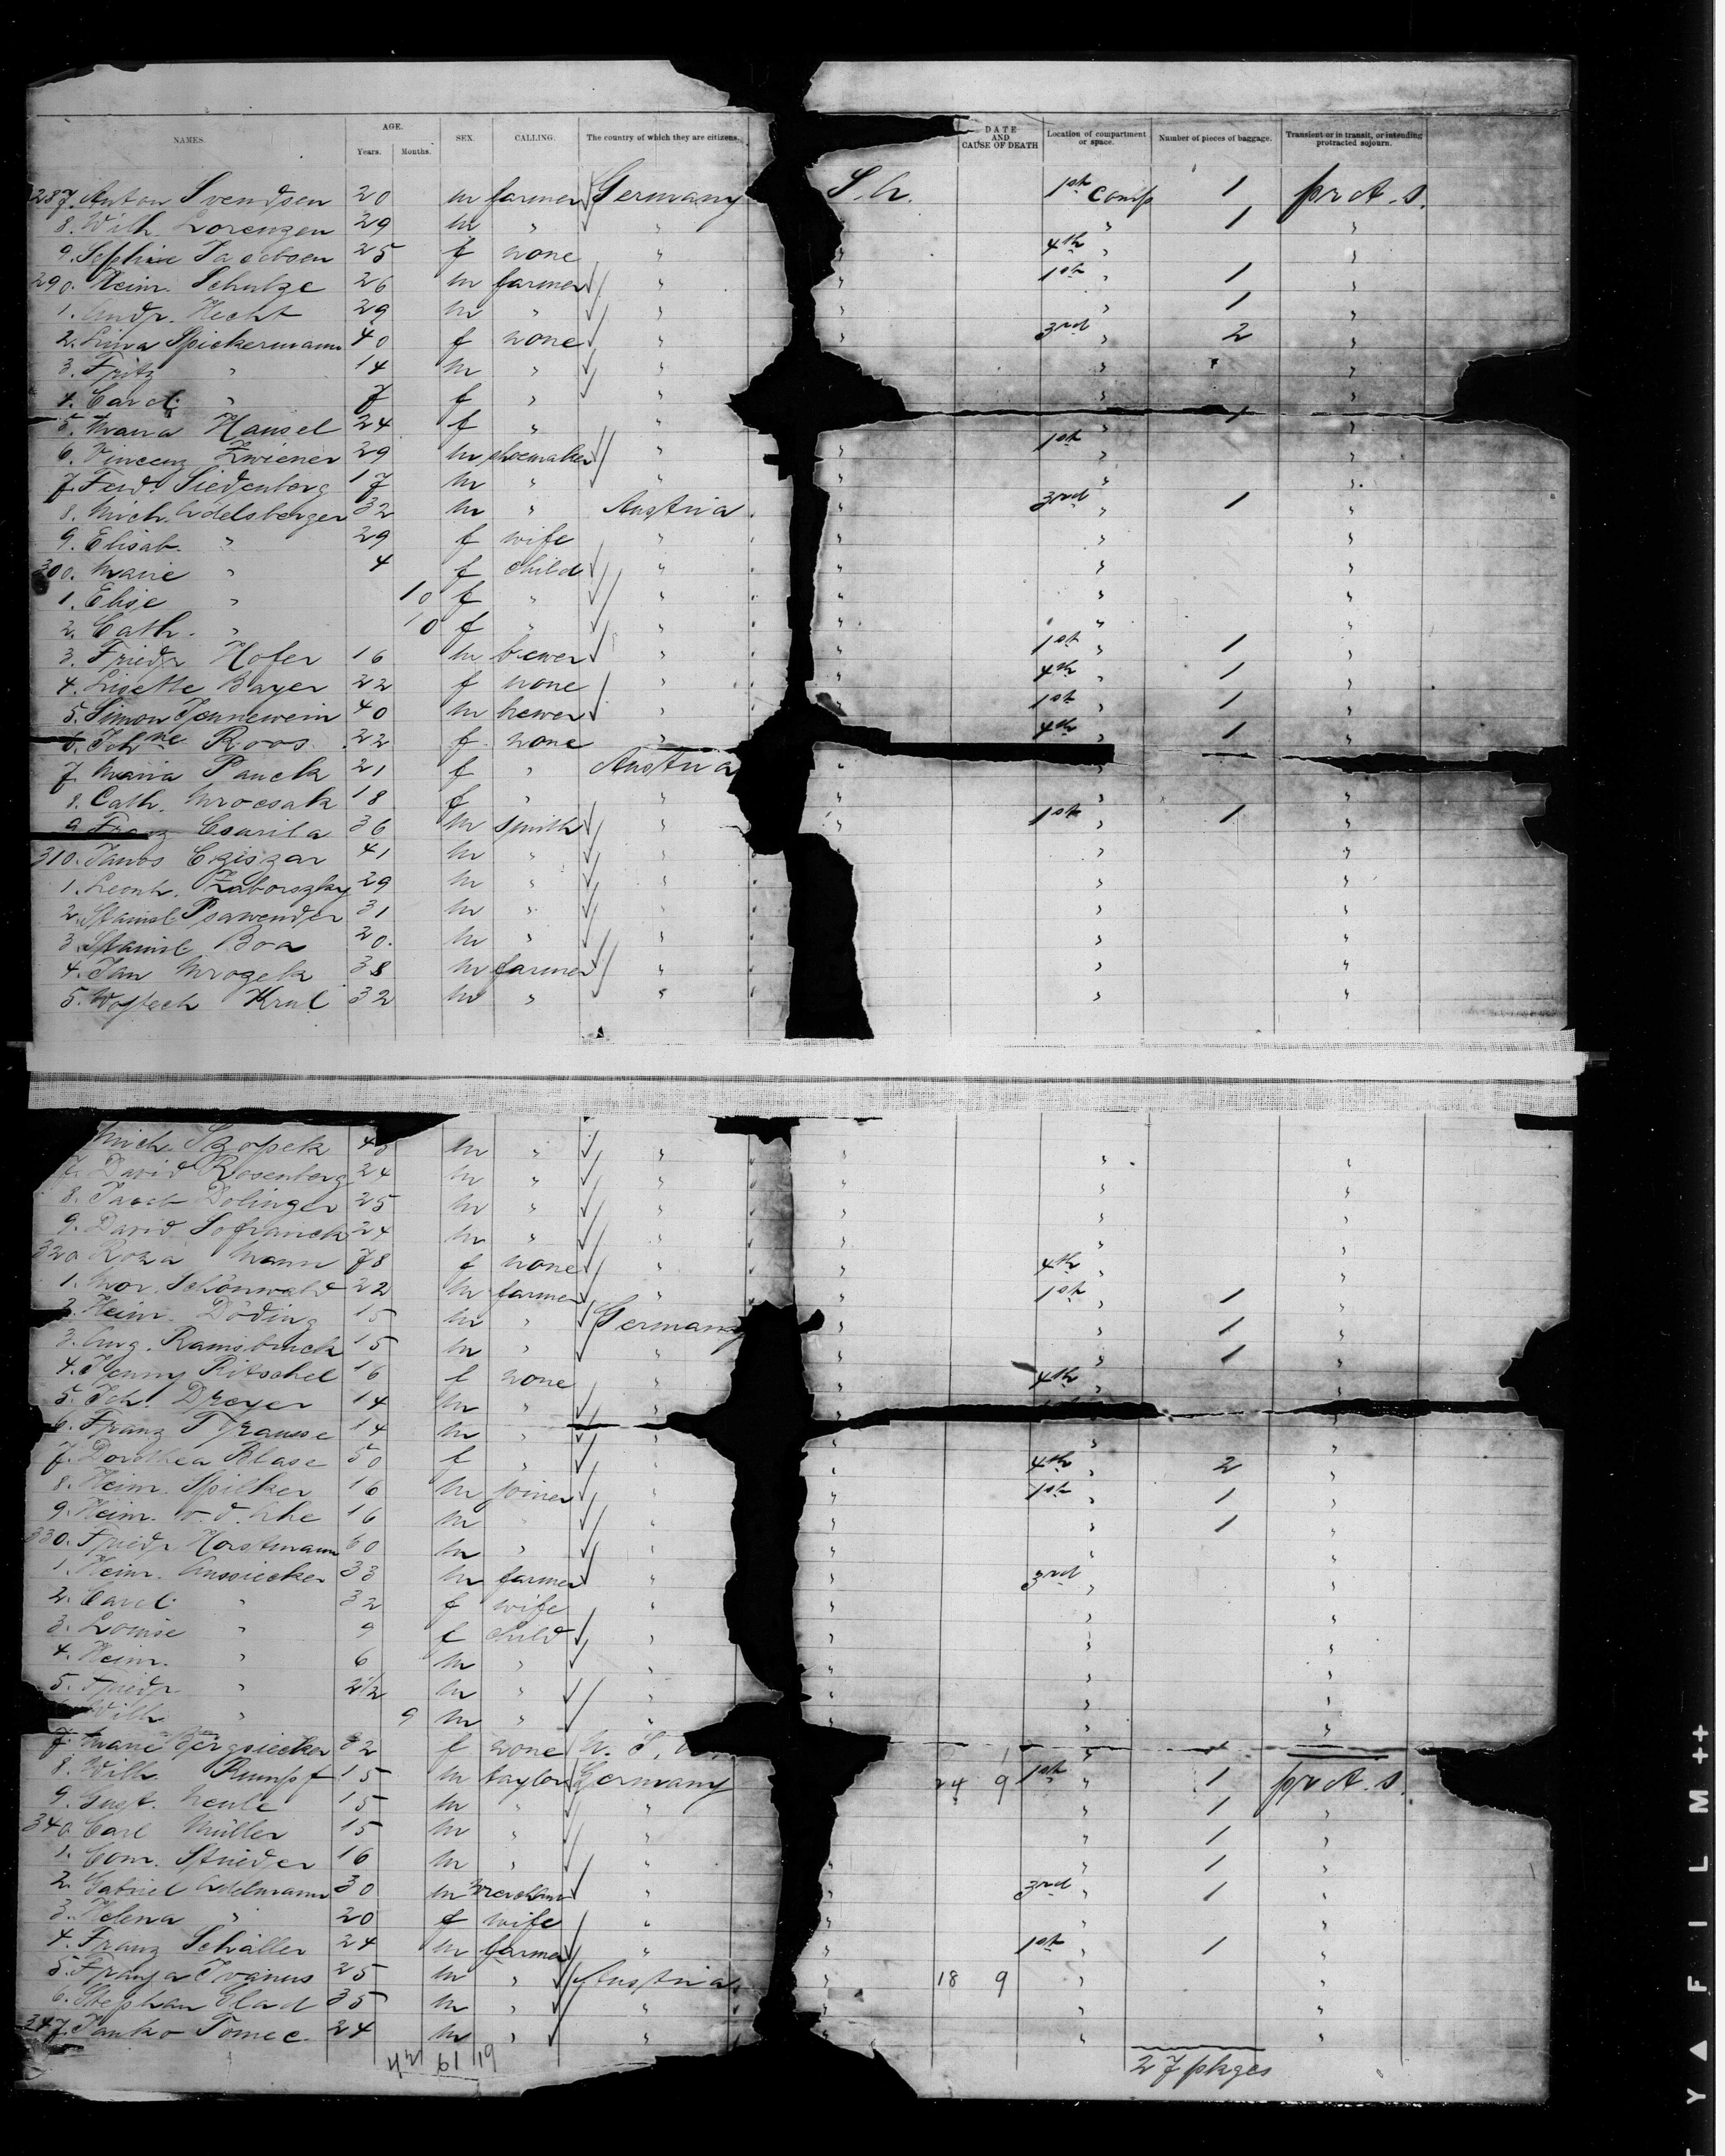 NAMES. AGE. SEX. CALLING. The country of which they are citizens. DATE AND CAUSE OF DEATH Location of compartment or space. Number of pieces of baggage. Transient or in transit, or intending protracted sojourn.
Years. Months.
287. Anton Svendsen 20 m farmer Germany 1st comp 1 pr A. s.
8. Wilh. Lorenzen 29 m " " " " 1 "
9. Jacobsen 25 f none " " 4th " "
290. Heinr. Schulze 26 m farmer " " 1st " 1 "
1. Andr. Hecht 29 m " " " " 1 "
2. Lina Spickermann 40 f none " " 3rd " 2 "
3. Fritz " 14 m " " " "
4. Carol. " 7 f " " " "
5. Maria Hansel 24 f " " " 1 "
6. Vincenz Zwiener 29 m shoemaker " " 1st " "
7. Ferd. Siedenberg 17 m " " " " "
8. Mich. Adelsberger 32 m " Austria. " 3rd " 1 "
9. Elisab. " 29 f wife " " " "
300. Marie " 4 f child " " " "
1. Elise " 10 f " " " " "
2. Cath. " 10 f " " " " "
3. Friedr Hofer 16 m brewer " " 1st " 1 "
4. Lisette Bayer 22 f none " " 4th " 1 "
5. Simon Jennewein 40 m brewer " " 1st " 1 "
6. Joh ne Roos 22 f none " 4th " 1 "
7. Maria Panek 21 f " Austria " " "
8. Cath. Mrocsak 18 f " " " " "
9. Franz Csarila 36 m smith " " 1st " 1 "
310. Janos Cziszar 41 m " " " "
1. Leonh. Zaborszky 29 m " " " "
2. Stanisl. 31 m " " " "
3. Stanisl. Boa 20. m " " " "
4. Jan Mrozek 38 m farmer " " "
5. Krul 32 m " " " "
Mich. Szopek m " " " "
7. David Rosenberg 24 m " " " " "
8. Jacob Dolinger 25 m " " " " "
9. David Sofranek 24 m " " " " "
320 Roza Mann 78 f none " " 4th " "
1. Mor. Schönwald 22 m farmer " " 1st " 1 "
2. Heinr. Döding 15 m " Germany " " 1 "
3. Aug. 15 m " " " " 1 "
4. Jenny Ritschel 16 f none " " 4th " "
5. Joh. Dreyer 14 m " " " "
6. Franz 14 m " " " " "
7. Dorothea Blase 50 f " " " 4th " 2 "
8. Heinr. Spilker 16 m joiner " " 1st " 1 "
9. Heinr. v. d. Ahe 16 m " " " " 1 "
330. Friedr Horstmann 60 m " " " " "
1. Heinr. Aussiecker 33 m farmer " " 3rd " "
2. Carol. " 32 f wife " " " "
3. Louise " 9 f child " " " "
4. Heinr. " 6 m " " " " "
5. Friedr " 2 1/2 m " " " " "
Wilh. " 9 m " " " " "
7. Marie f none U. S. A.
8. Wilh. Rumpf 15 m taylor Germany 24 9 1st " 1 pr A. s.
9. Gust. 15 m " " " 1 "
340 Carl Müller 15 m " " " 1 "
1. Conr. Strieder 16 m " " " " 1 "
2. Gabriel Adelmann 30 m " " 3rd " 1 "
3. Helena " 20 f wife " " " "
4. Franz Schäller 24 m farmer " " 1st " 1 "
5. Franja Ivanus 25 m " Austria. " 18 9 " "
6. Stephan Glad 35 m " " " " "
347. Janko Tomec. 24 m " " " " "
42 61 19 27 pkges